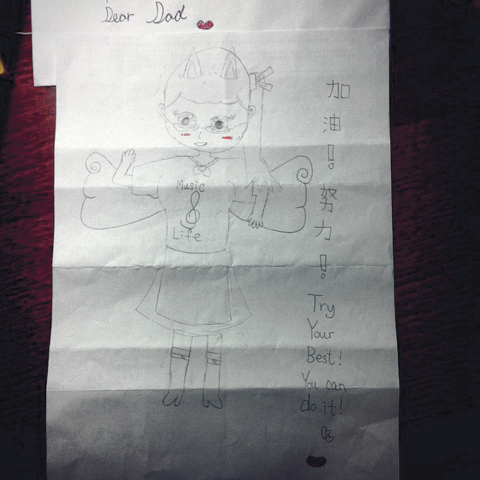 Dear Dad
Music
Life
加
油
!
努
力
!
Try
Your
Best!
You can
do it!